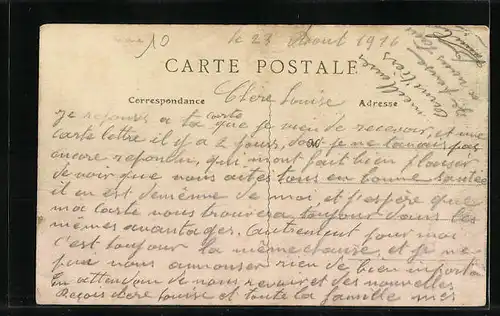 10
le 23 Aout 1916
CARTE POSTALE
Correspondance
Adresse
Chère Louise
Je reponds a ta carte que je vien de recevoir, et une
carte lettre il y a 2 jours, je ne l'avais pas
encore repondu, qui mont fait bien plaisir
de voir que vous autes tous en bonne santée
il en est demême de moi et j'espère que
ma carte vous trouvera toujour dans les
mêmes avantages. autrement pour moi
c'est toujour la même chause, et je ne
puà vous annonser rien de bien importa
En attendan de vous revoir et des nouvelles
Reçois chere Louise et toute la famille mes
meilleures
amitiers